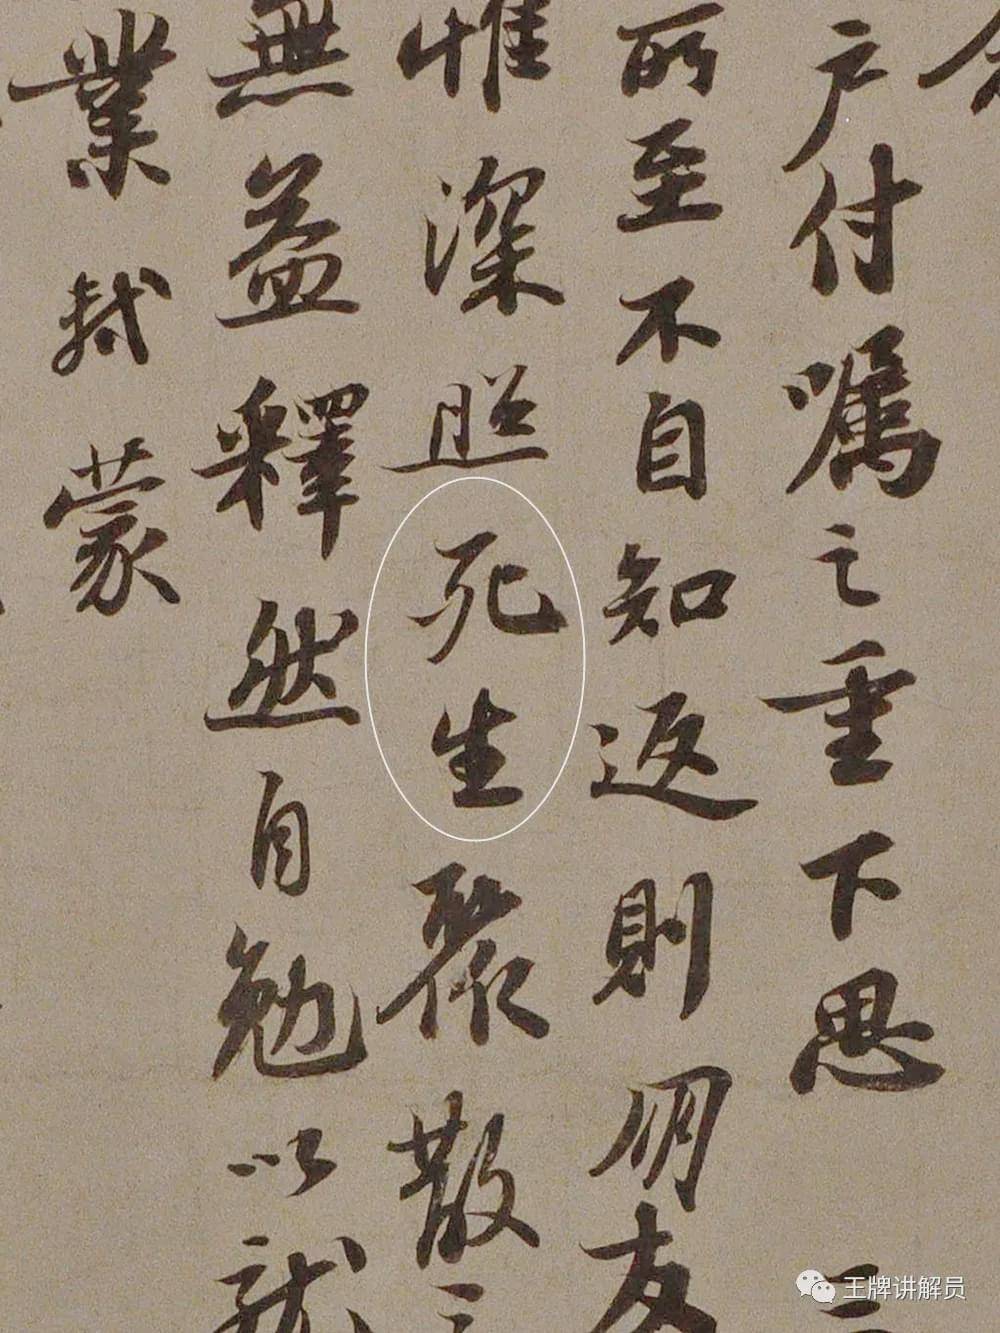 户付嘱之重下思三
所至不自知返則朋友
惟深照死生聚散三
無益釋然自勉以就
業軾蒙
王牌讲解员